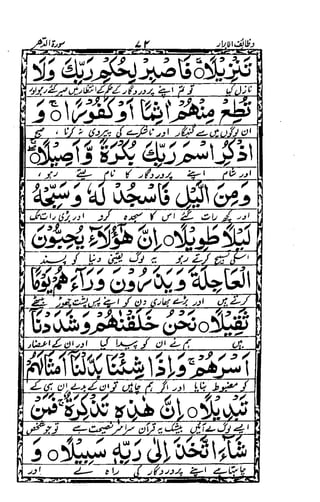 وظائف الابرار ۷۲ سورة الدهر
تَنْزِيْلًا○ فَاصْبِرْ لِحُكْمِ رَبِّكَ وَلَا
نازل کیا تو تم اپنے پروردگار کے حکم کے انتظار میں صبر کئے رہو اور
تُطِعْ مِنْهُمْ اٰثِمًا اَوْ كَفُوْرًا○ وَ
ان لوگوں میں سے گنہگار اور ناشکرے کی پیروی نہ کرنا، صبح
اذْكُرِ اسْمَ رَبِّكَ بُكْرَةً وَّاَصِيْلًا○
اور شام اپنے پروردگار کا نام لیتے رہو،
وَمِنَ الَّيْلِ فَاسْجُدْ لَهٗ وَسَبِّحْهُ
اور کچھ رات گئے اس کا سجدہ کرو اور بڑی رات تک
لَيْلًا طَوِيْلًا○ اِنَّ هٰٓؤُلَآءِ يُحِبُّوْنَ
اسکی تسبیح کرتے رہو یہ لوگ یقینی دنیا کو پسند
الْعَاجِلَةَ وَيَذَرُوْنَ وَرَآءَهُمْ يَوْمًا
کرتے ہیں اور بڑے بھاری دن کو اپنے پس پشت چھوڑ بیٹھے
ثَقِيْلًا○ نَحْنُ خَلَقْنٰهُمْ وَشَدَدْنَآ
ہیں ہم نے ان کو پیدا کیا اور ان کے اعضاء
اَسْرَهُمْ ۚ وَاِذَا شِئْنَا بَدَّلْنَآ اَمْثَالَهُمْ
کو مضبوط بنایا اور اگر ہم چاہیں تو ان کے بدلے ان ہی کے
تَبْدِيْلًا○ اِنَّ هٰذِهٖ تَذْكِرَةٌ ۚ فَمَنْ
ایسے لوگ لے آئیں بیشک یہ قرآن سراسر نصیحت ہے تو جو شخص
شَآءَ اتَّخَذَ اِلٰى رَبِّهٖ سَبِيْلًا○ وَ
چاہتا ہے اپنے پروردگار کی راہ لے اور